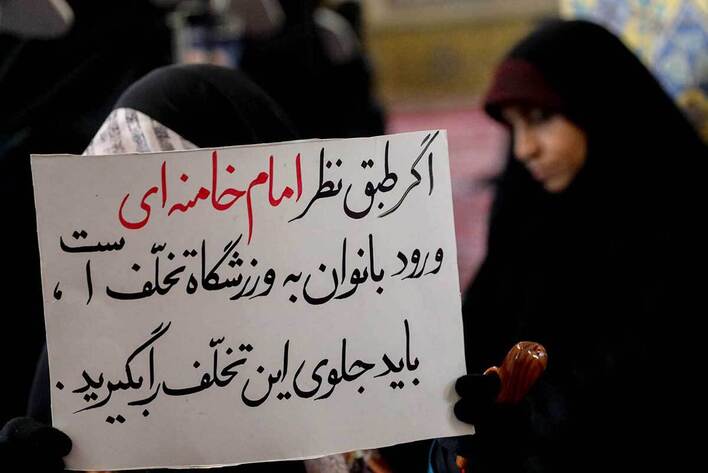 اگر طبق نظر امام خامنه ای
ورود بانوان به ورزشگاه تخلّف است،
باید جلوی این تخلّف را بگیرید.